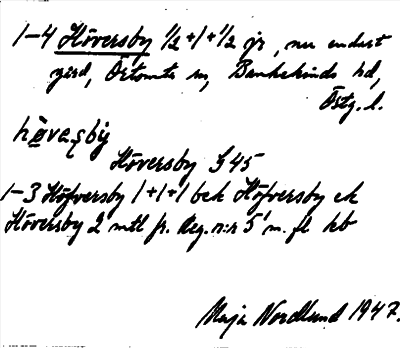 1-4 Höversby ½+1+½ gr, nu endast
gård, Örtomta sn, Bankekinds hd,
Östg. l.
høvəsby
Höversby J 45
1-3 Höfversby 1+1+1 bek Höfversby ek
Höversby 2 mtl fr. Reg. n:r 5' m. fl hb
Maja Nordlund 1947.